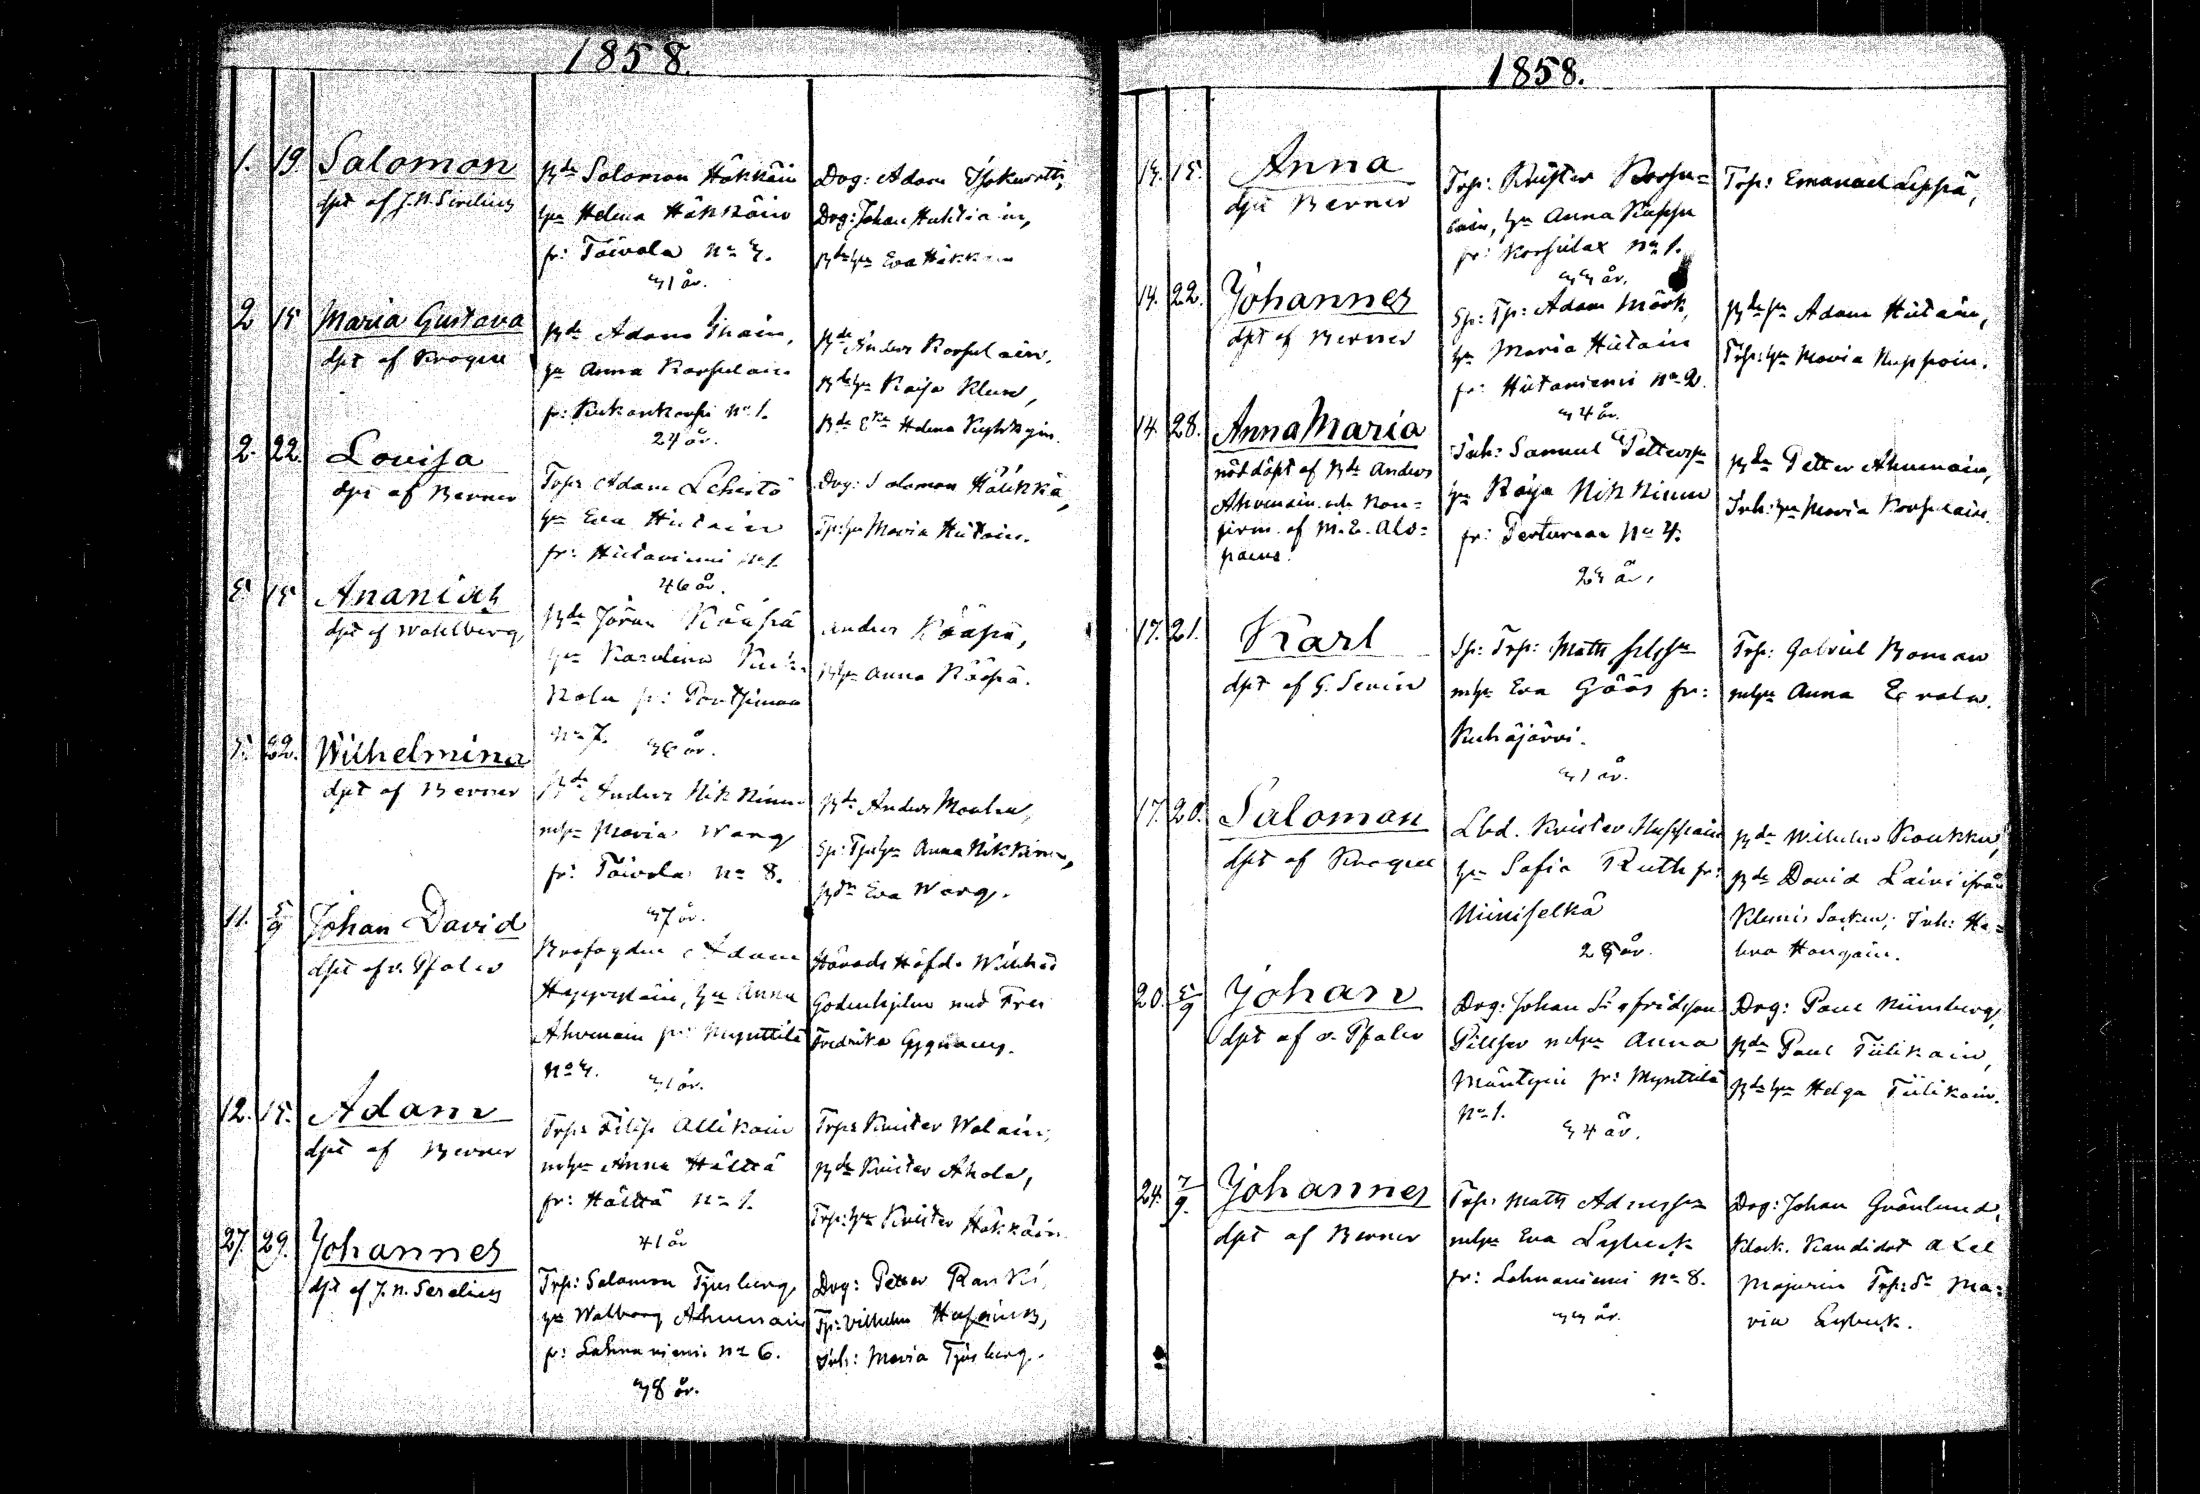 1858.
1. 19. Salomon
dpt af J. N. Serelius
Bde Salomon Häkkäin
hu Helena Häkkäin
fr: Toivola No 3.
31 år.
Drg: Adam
Drg: Johan Huhtiain,
Bde hu Eva Häkkäin
2 15 Maria Gustava
dpt af Krogell
Bde Adam Inain,
hu Anna Korpelain
fr: Kukonkorpi No 1.
24 år.
Bde Anders Korpelain,
Bde hu Kaisa
Bde Eka Helena
2. 22. Lovisa
dpt af Berner
Trp: Adam Lehesto
hu Eva Hietain
fr: Hietaniemi No 1.
46 år.
Drg: Salomon Häkkä,
Tp: hu Maria Hietain.
5 15 Ananias
dpt af Wahlberg
Bde Jöran Kääpä
hu Karolina
fr:
No 7.
36 år.
Anders Kääpä,
Bhu Anna Kääpä.
5. 22. Wilhelmina
dpt af Berner
Bde Anders Nikkinen
mhu Maria Warg
fr: Toivola No 8.
37 år.
Bde Anders
Sp: Tp: hu Anna Nikkinen,
Bdr Eva Warg.
11. 5/9 Johan David
dpt af v. Pfaler
Adam
hu Anna
Ahvenain fr: Mynttilä
No 3.
31 år.
Härads Höfd.
Godenhjelm med Frex
Fredrika Cygnaeus.
12. 15. Adam
dpt af Berner
Trp: Filip Allikain
mhu Anna Hölttä
fr: Hölttä No 1.
41 år
Trp: Krister Walain,
Bde Krister Ahola,
Trp: hu Krister Häkkäin
27. 29. Johannes
dpt af J. N. Serelius
Trp: Salomon Tjusberg,
hu Walborg Ahvenain
fr: Lahnaniemi No 6.
38 år.
Drg: Petter Ranki,
Tp: Vilhelm
Inh: Maria Tjusberg.
1858.
13. 15. Anna
dpt Berner
Trp: Krister Korpe=
lain, hu Anna
fr: Korpilax No 1.
33 år.
Trp: Emanuel Leppä,
14. 22. Johannes
dpt af Berner
Sp: Tp: Adam Mörk,
hu Maria Hietain
fr: Hietaniemi No 2.
34 år.
Bde sn Adam Hietain,
Trp: hu Maria
14. 28. Anna Maria
nöddöpt af Bde Anders
Ahvenain och Kon=
firm. af M. E. Alo=
paeus.
Inh: Samuel Petterss
hu Kaisa Nikkinen
fr: Perturmaa No 4.
23 år.
Bde Petter Ahvenain,
Inh: hu Maria Korpelain.
17. 21. Karl
dpt af G. Sevin
Sp: Trp: Matts
mhu Eva Göös fr:
Kuhäjärvi.
31 år.
Trp: Gabriel Boman
mhu Anna
17. 20. Salomon
dpt af Krogell
Lbd. Krister
hu Sofia Ruth fr:
Niiniselkä
28 år.
Bde Wilhelm Koukku,
Bde David ifrån
Klemis Socken; Inh: He=
lena
20. 5/9 Johan
dpt af v. Pfaler
Drg: Johan Sigfridsson
mhu Anna
Mäntyin fr: Mynttilä
No 1.
34 år.
Drg: Paul Nümberg,
Bde Paul Tiilikain,
Bde hu Helga Tiilikain.
24. 7/9. Johannes
dpt af Berner
Trp: Matts
mhu Eva Lybeck
fr: Lahnaniemi No 8.
33 år.
Drg: Johan Grönlund,
Klock. Kandidat Axel
Majurin Trp: dr Ma=
ria Lybeck.